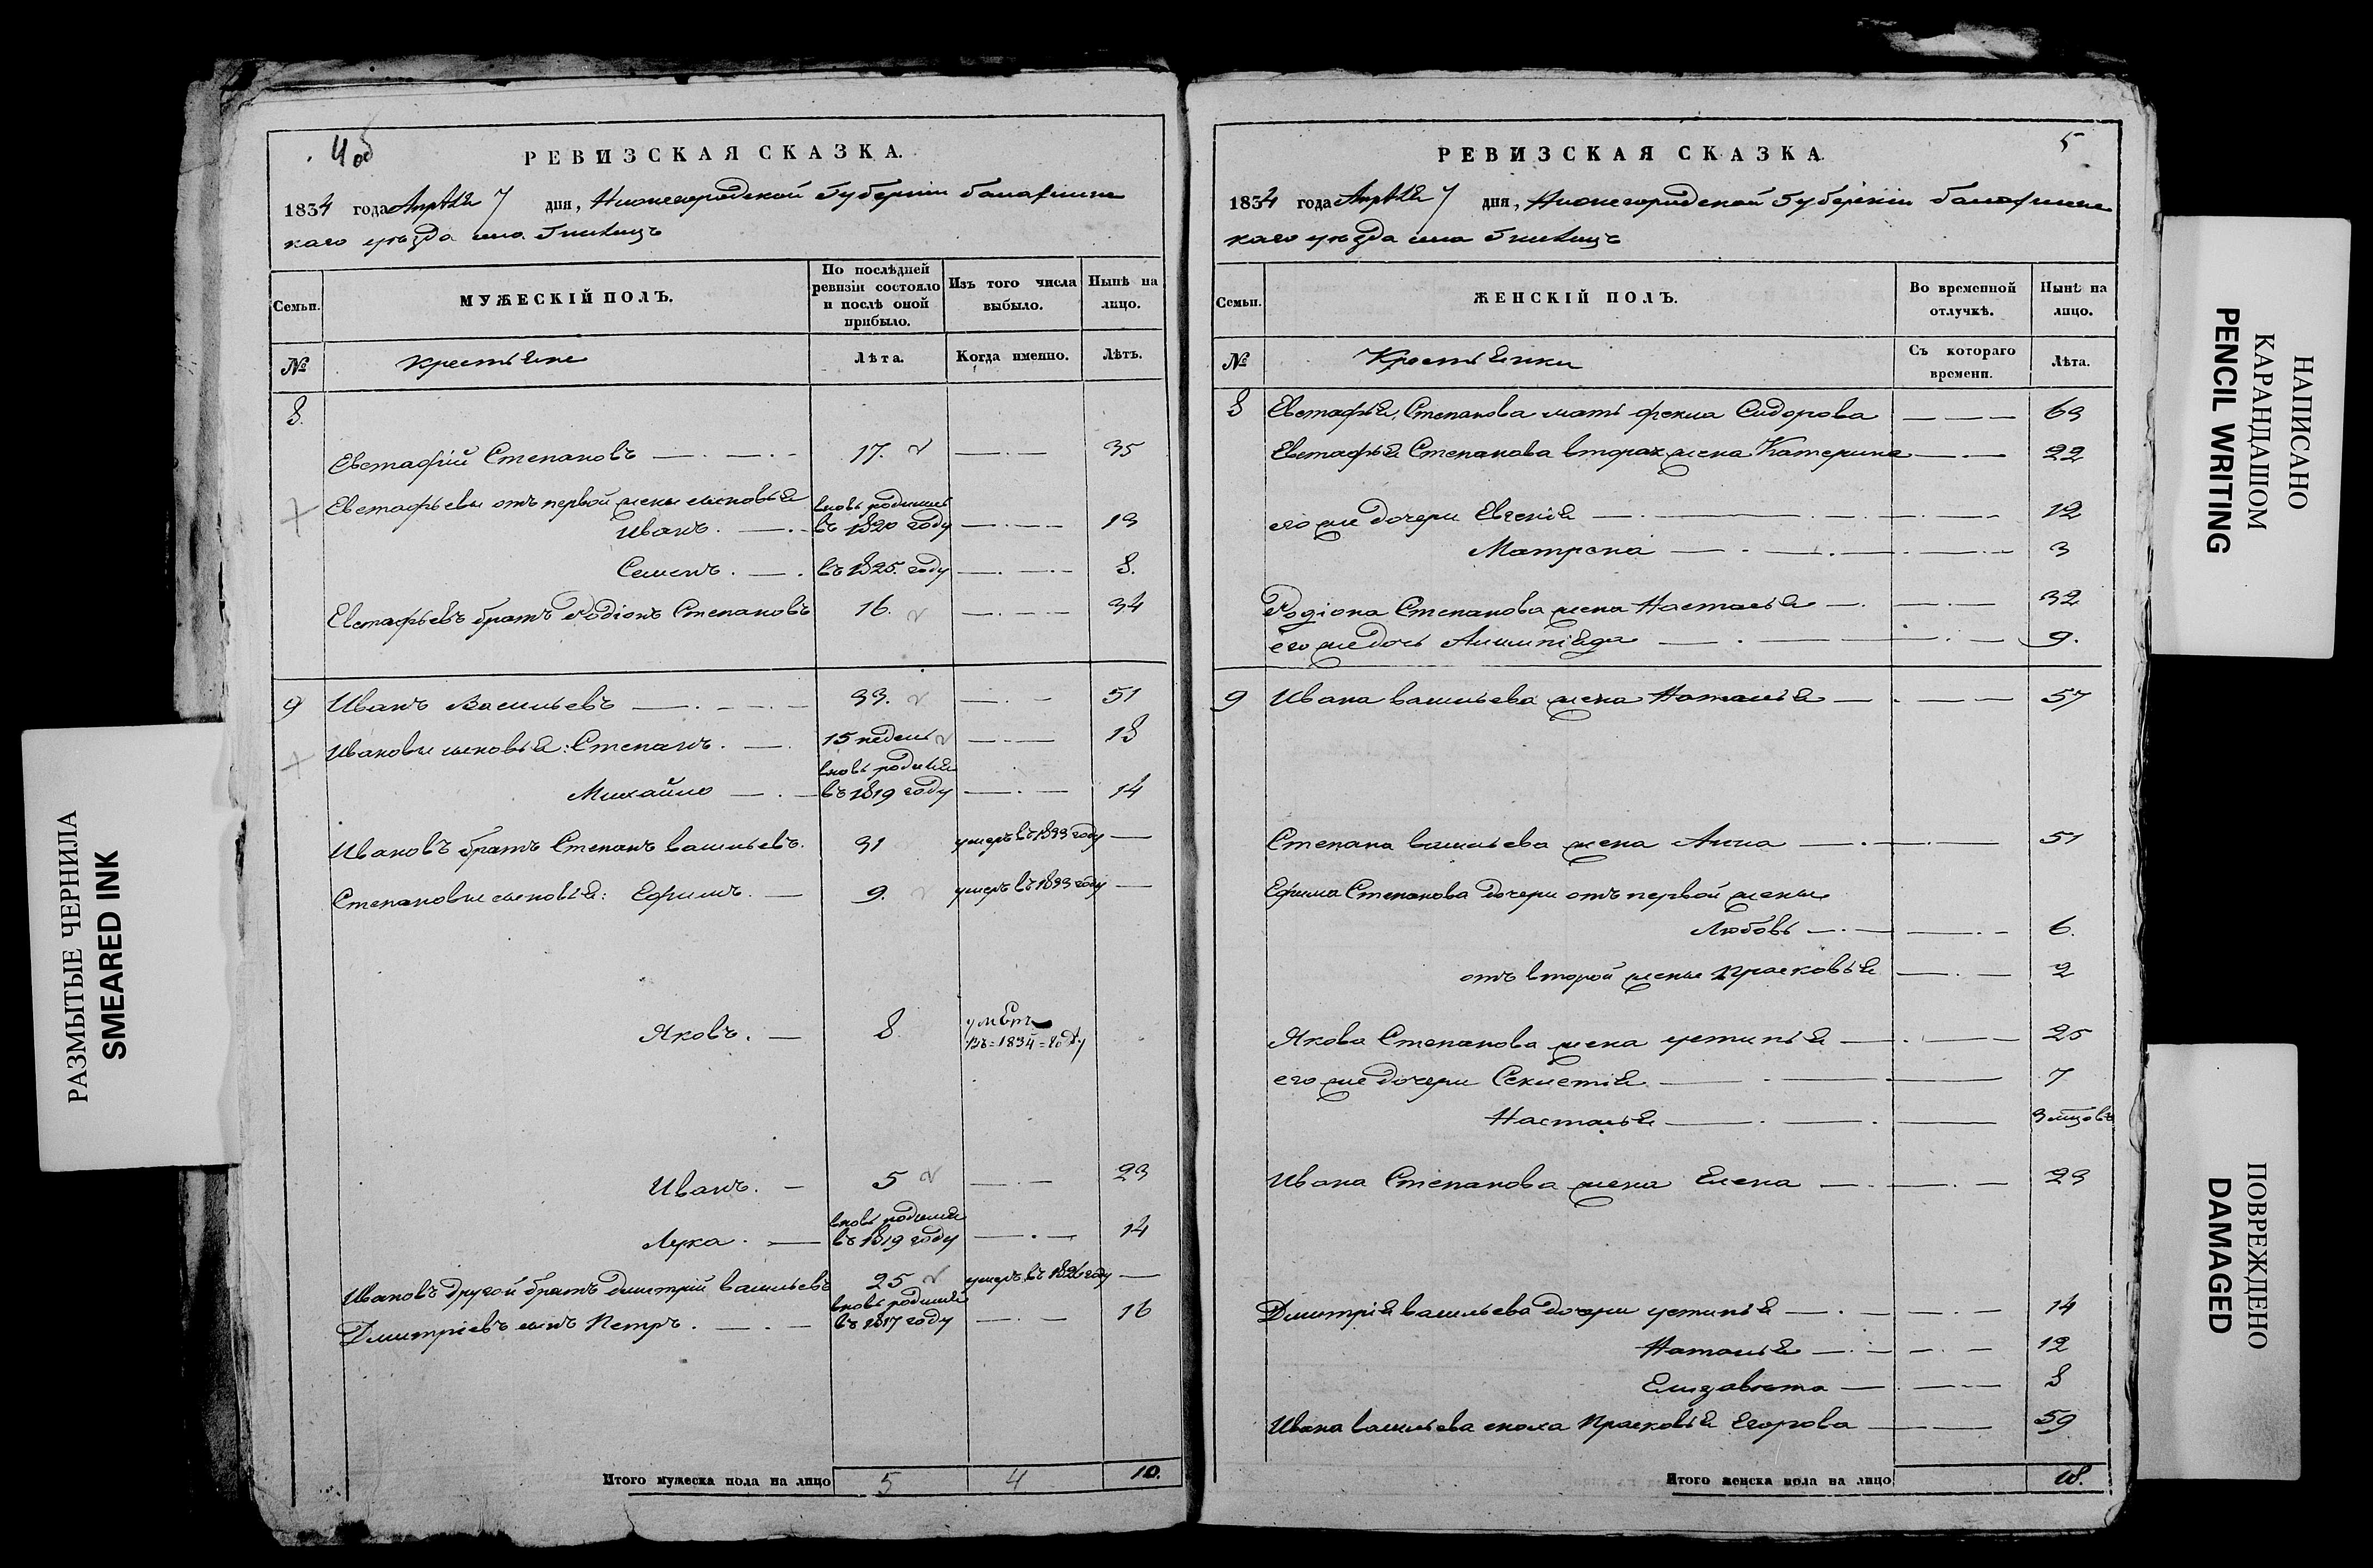 4 об
РЕВИЗСКАЯ СКАЗКА.
1834 года Апрѣля 7 дня, Нижегородской губерніи балахнинс
каго уѣзда села
Семьи.
МУЖЕСКІЙ ПОЛЪ.
По послѣдней ревизіи состояло и послѣ оной прибыло.
Изъ того числа выбыло.
Нынѣ на лицо.
№
крестьяне
Лѣта.
Когда именно.
Лѣтъ.
8
Евстафій Степановъ 17. 35
Евстафьевы отъ первой жены сыновья
Иванъ. вновь родился въ 1820 году 13
Семенъ. въ 1825. году 8.
Евстафьевъ братъ Родіонъ Степановъ 16. 34
9 Иванъ Васильевъ 33. 51
Ивановы сыновья: Степанъ. 15 недель 18
Михайло вновь родился въ 1819 году 14
Ивановъ братъ Степанъ васильевъ. 31 умеръ въ 1833 году
Степановы сыновья: Ефимъ. 9. умеръ въ 1833 году
Яковъ. 8 умеръ въ=1834=году
Иванъ. 5 23
Лука. вновь родился въ 1819 году 14
Ивановъ другой братъ дмитрій васильевъ 25 умеръ въ 1826 году
Дмитріевъ сынъ Петръ. вновь родился въ 1817 году 16
Итого мужеска пола на лицо 5 4 10.
5
РЕВИЗСКАЯ СКАЗКА.
1834 года Апрѣля 7 дня, Нижегородской губерніи балахнинс
каго уѣзда села
Семьи.
ЖЕНСКІЙ ПОЛЪ.
Во временной отлучкѣ.
Нынѣ на лицо.
№
Крестьянки
Съ котораго времени.
Лѣта.
8 Евстафья Степанова мать фекла Сидорова 63
Евстафья Степанова вторая жена Катерина 22
его же дочери Евгенія 12
Матрена 3
Родіона Степанова жена Настасья 32
его же дочь Алимпіяда 9.
9 Ивана васильева жена Наталья 57
Степана васильева жена Анна 51
Ефима Степанова дочери отъ первой жены
Любовь 6.
отъ второй жены прасковья 2
Якова Степанова жена устинья 25
его же дочери Секлетія 7
Настасья 3 мцовъ
Ивана Степанова жена Елена 23
Дмитрія васильева дочери устинья 14
Наталья 12
Елизавета 8
Ивана васильева сноха Прасковья Егорова 59
Итого женска пола на лицо 18.
РАЗМЫТЫЕ ЧЕРНИЛА
SMEARED INK
НАПИСАНО
КАРАНДАШОМ
PENCIL WRITING
ПОВРЕЖДЕНО
DAMAGED